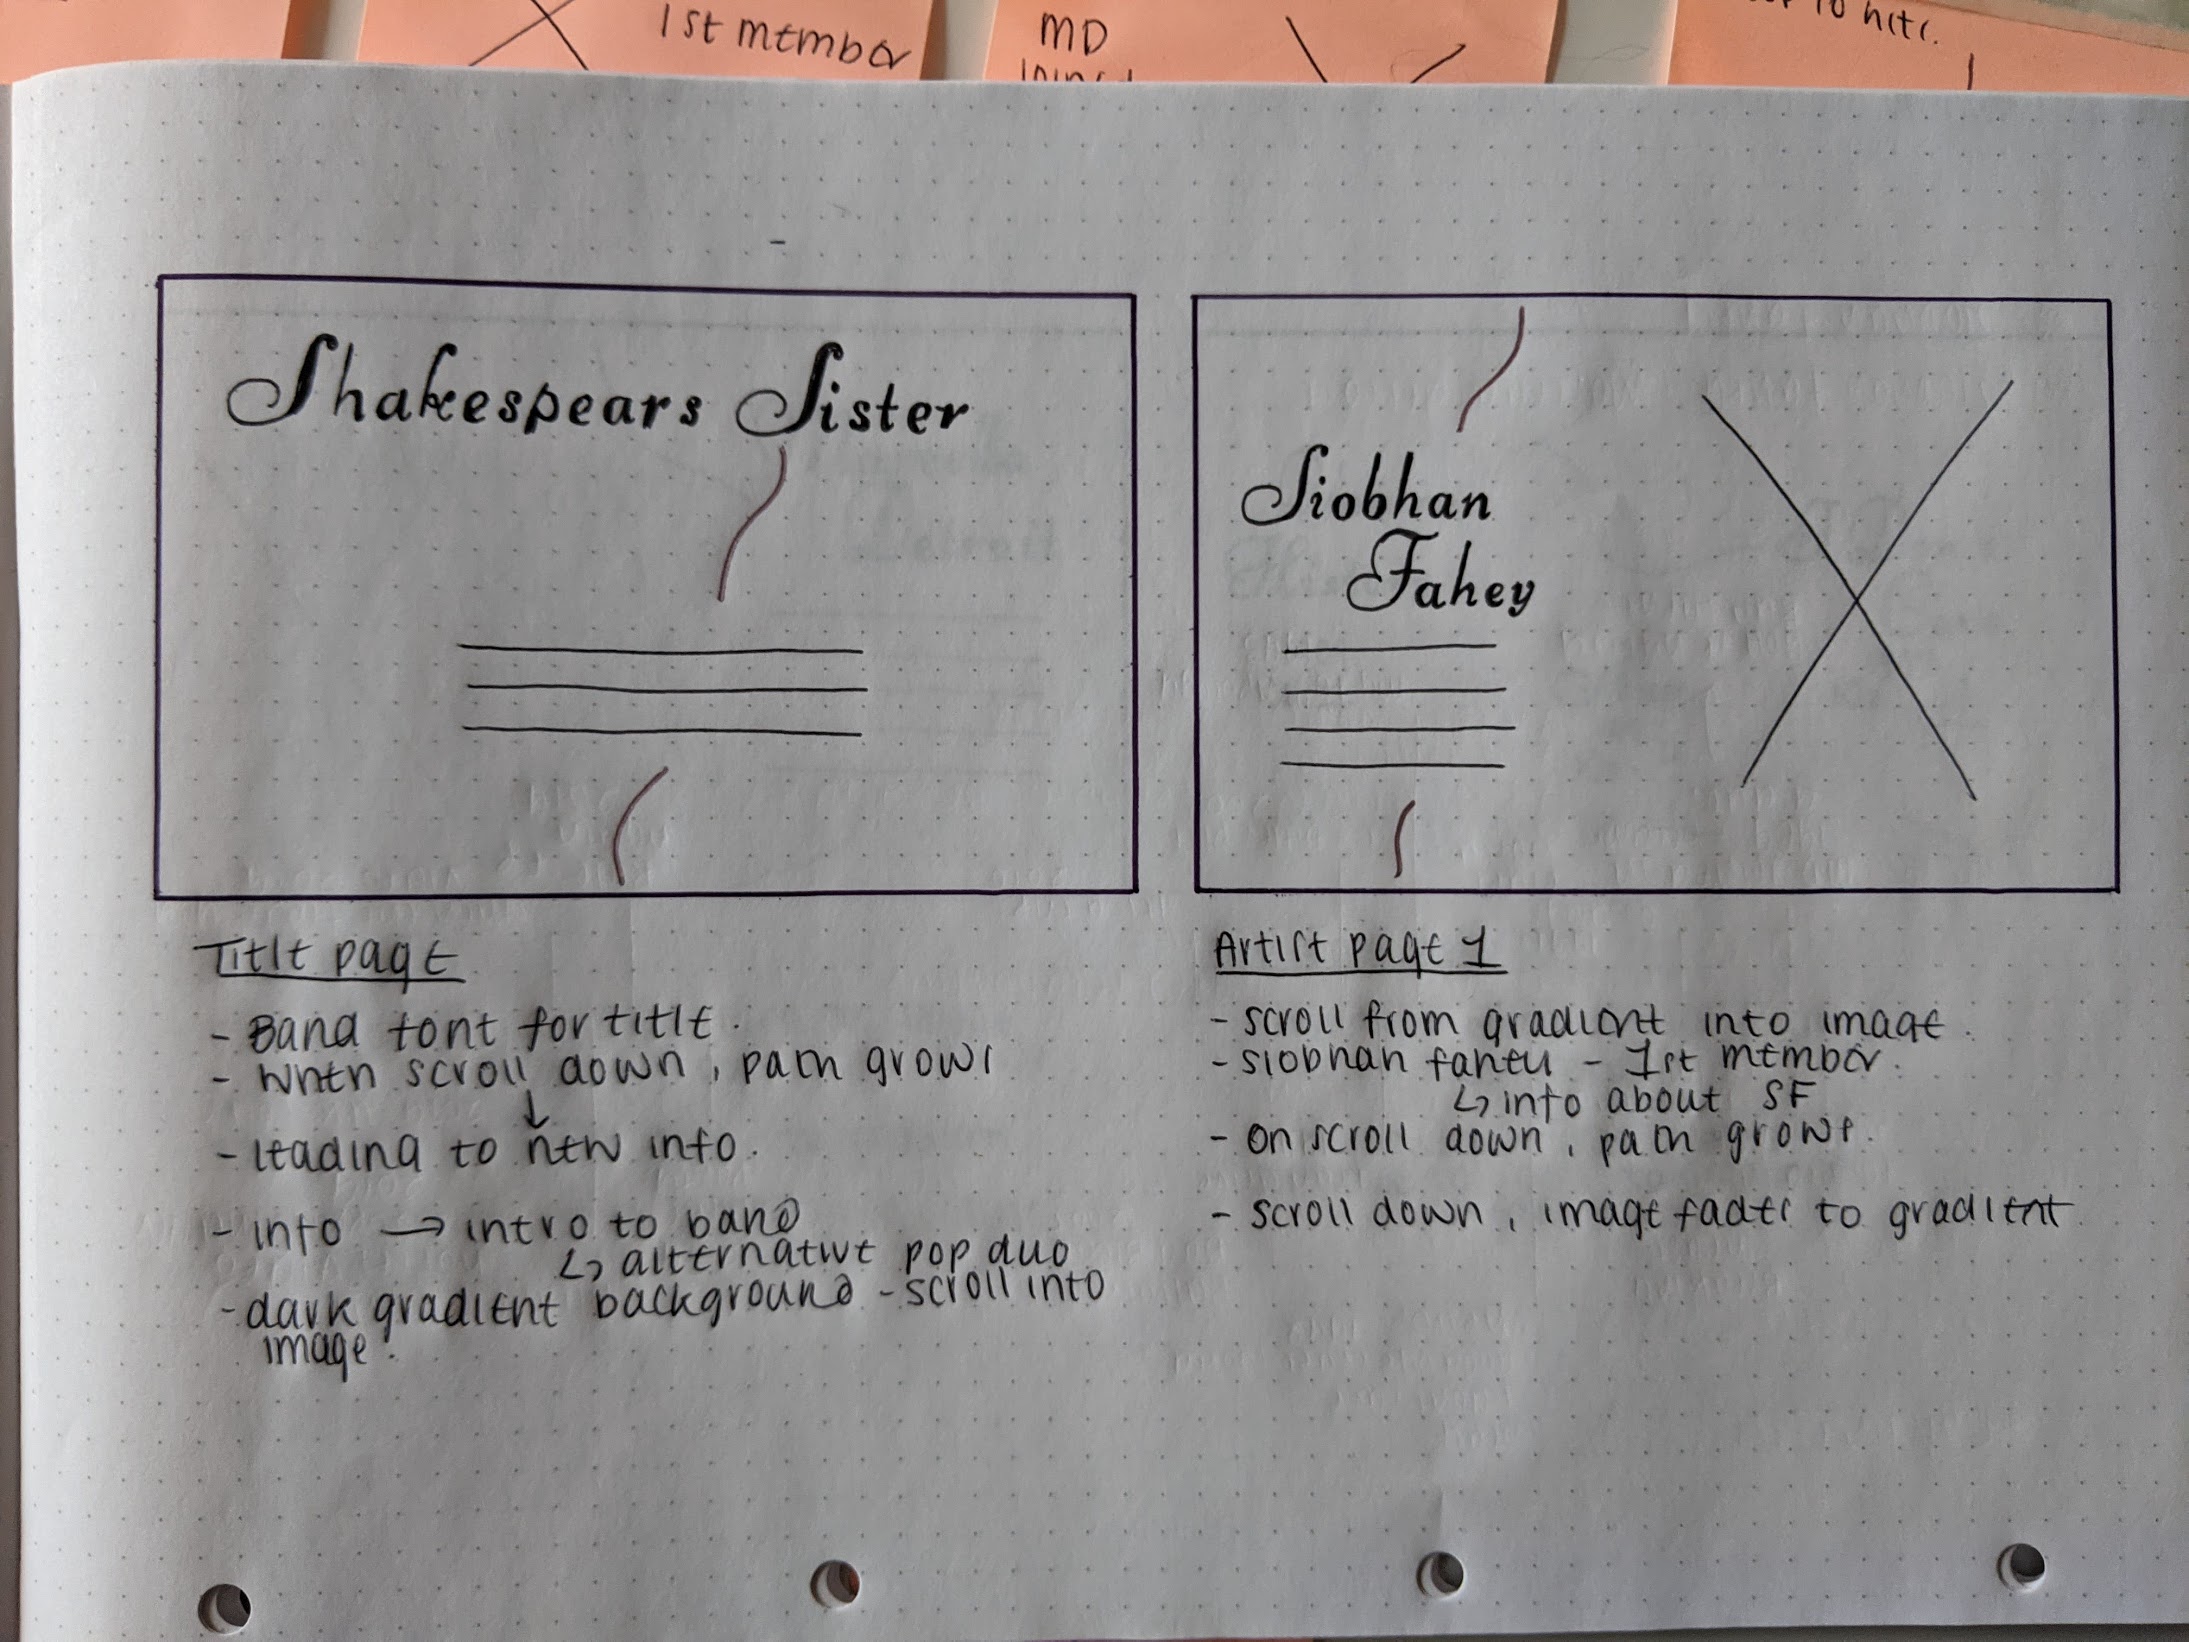 1st member
MD
10 hits.
Shakespears Sister
Siobhan
Fahey
Title page
- Band font for title.
- when scroll down, path grows
- leading to new info.
- info → intro to band
↳ alternative pop duo
- dark gradient background - scroll into
image.
Artist page 1
- scroll from gradient into image.
- siobhan fahey - 1st member.
↳ info about SF
- on scroll down, path grows.
- scroll down, image fades to gradient